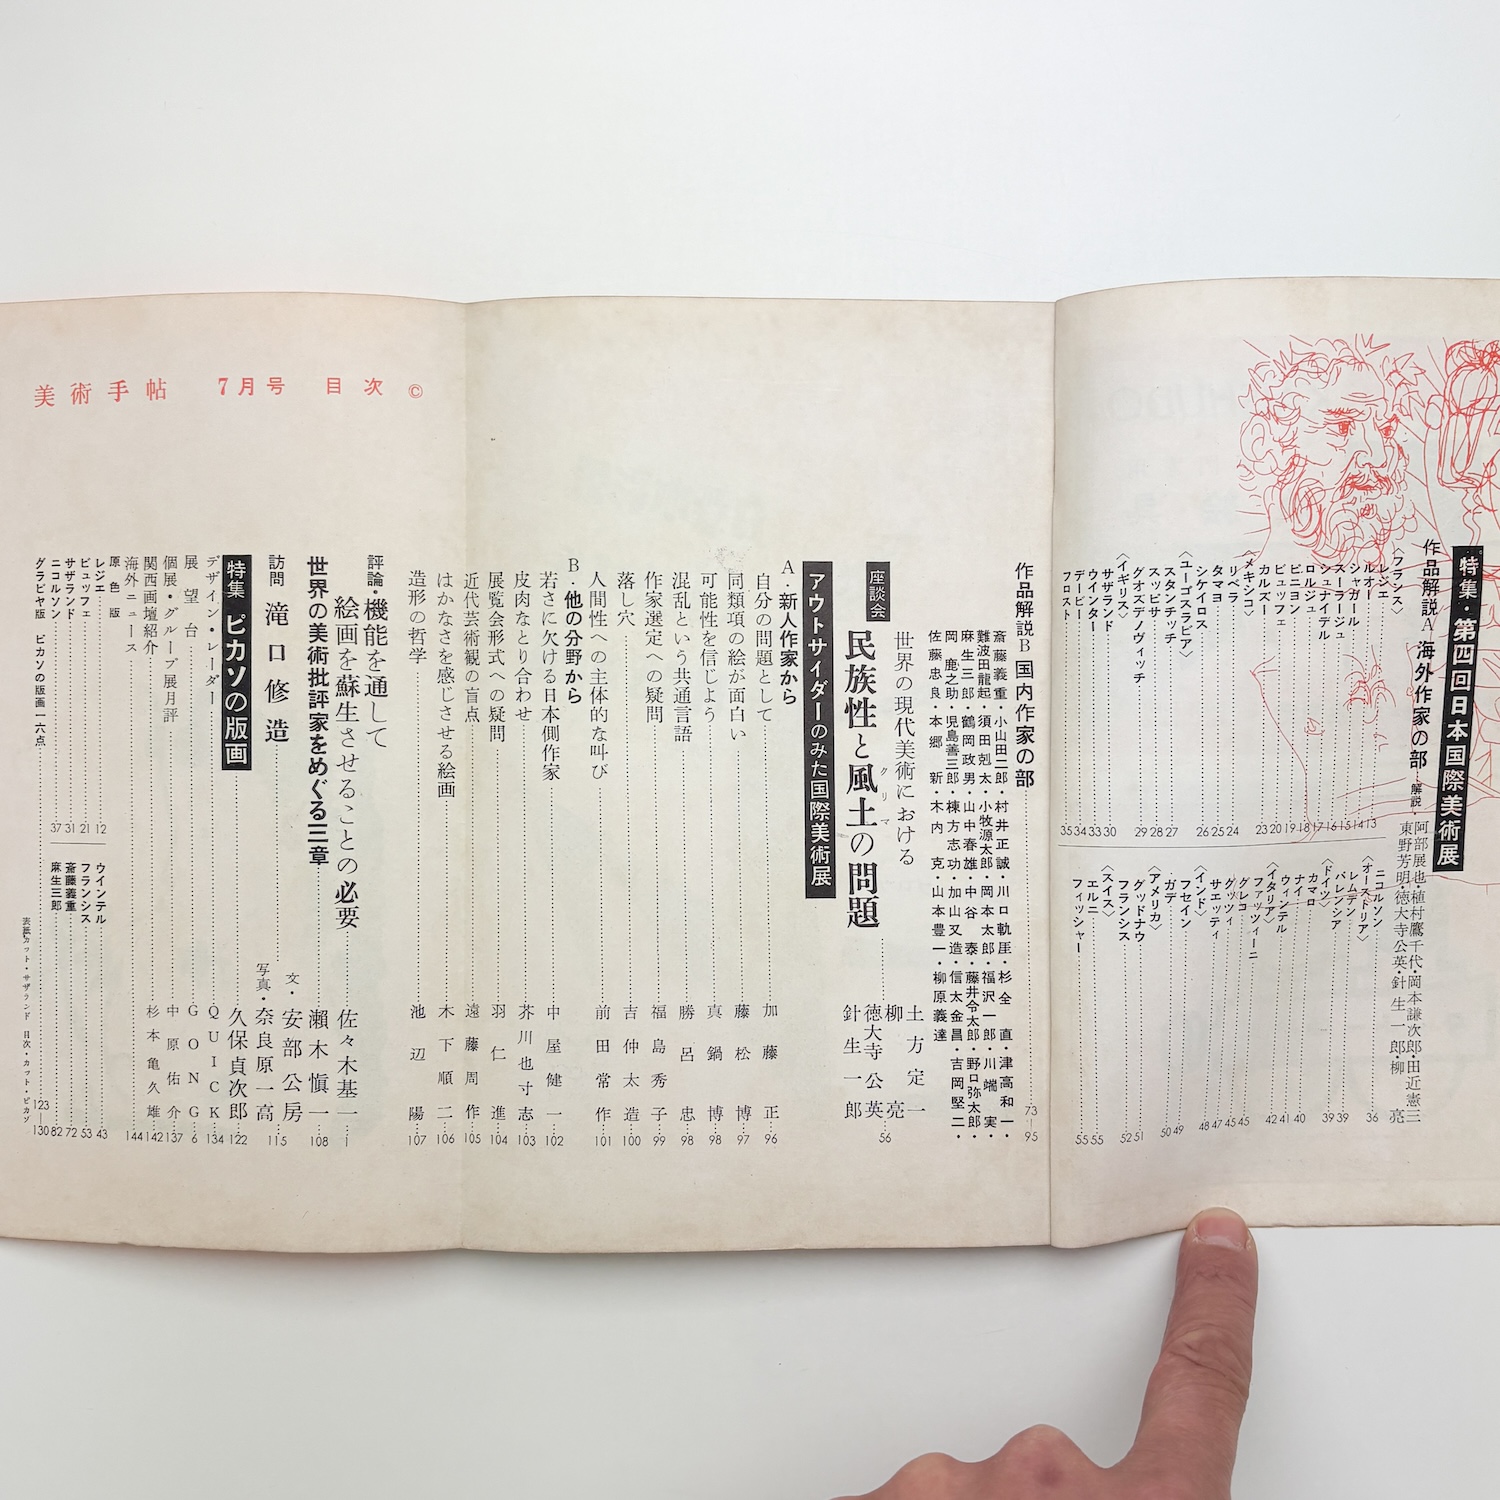 美術手帖 7月号 目次 ©
特集・第四回日本国際美術展
作品解説A 海外作家の部…解説・阿部展也・植村鷹千代・岡本謙次郎・田近憲三
東野芳明・徳大寺公英・針生一郎・柳亮
〈フランス〉
レジエ……13
ルオー……14
シャガール……15
スーラージュ……16
シュナイデル……17
ロルジュ……18
ピニヨン……19
ビュッフェ……20
カルズー……23
〈メキシコ〉
リベラ……24
タマヨ……25
シケイロス……26
〈ユーゴスラビア〉
スタンチッチ……27
スッピサ……28
グオズデノヴィッチ……29
〈イギリス〉
サザランド……30
ウインター……33
デービー……34
フロスト……35
ニコルソン……36
〈オーストリア〉
レムデン……39
バレンシア……39
〈ドイツ〉
カマロ……40
ナイ……41
ウィンテル……42
〈イタリア〉
ファッツィーニ……45
グレコ……45
グッツィ……47
サエッティ……48
〈インド〉
フセイン……49
ガデ……50
〈アメリカ〉
グッドナウ……51
フランシス……52
〈スイス〉
エルニ……55
フィッシャー……55
作品解説B 国内作家の部……73―95
斎藤義重・小山田二郎・村井正誠・川口軌外・杉全直・津高和一・
難波田龍起・須田剋太・小牧源太郎・岡本太郎・福沢一郎・川端実・
麻生三郎・鶴岡政男・山中春雄・中谷泰・藤井令太郎・野口弥太郎・
岡鹿之助・児島善三郎・棟方志功・加山又造・信太金昌・吉岡堅二・
佐藤忠良・本郷新・木内克・山本豊一・柳原義達
座談会
世界の現代美術における
民族性と風土の問題……56
クリマ
土方定一
柳亮
徳大寺公英
針生一郎
アウトサイダーのみた国際美術展
A・新人作家から
自分の問題として……加藤正…96
同類項の絵が面白い……藤松博…97
可能性を信じよう……真鍋博…98
混乱という共通言語……勝呂忠…98
作家選定への疑問……福島秀子…99
落し穴……吉仲太造…100
人間性への主体的な叫び……前田常作…101
B・他の分野から
若さに欠ける日本側作家……中屋健一…102
皮肉なとり合わせ……芥川也寸志…103
展覧会形式への疑問……羽仁進…104
近代芸術観の盲点……遠藤周作…105
はかなさを感じさせる絵画……木下順二…106
造形の哲学……池辺陽…107
評論・機能を通して
絵画を蘇生させることの必要……佐々木基一…1
世界の美術批評家をめぐる三章……瀬木慎一…108
訪問 滝口修造……文・安部公房…115
写真・奈良原一高
特集 ピカソの版画……久保貞次郎…122
デザイン・レーダー……QUICK…134
展望台……GONG…6
個展・グループ展月評……中原佑介…137
関西画壇紹介……杉本亀久雄…142
海外ニュース……144
原色版
レジエ……12
ビュッフェ……21
サザランド……31
ニコルソン……37
ウインテル……43
フランシス……53
斎藤義重……72
麻生三郎……82
グラビヤ版 ピカソの版画一六点……123―130
表紙カット・サザランド 目次・カット・ピカソ